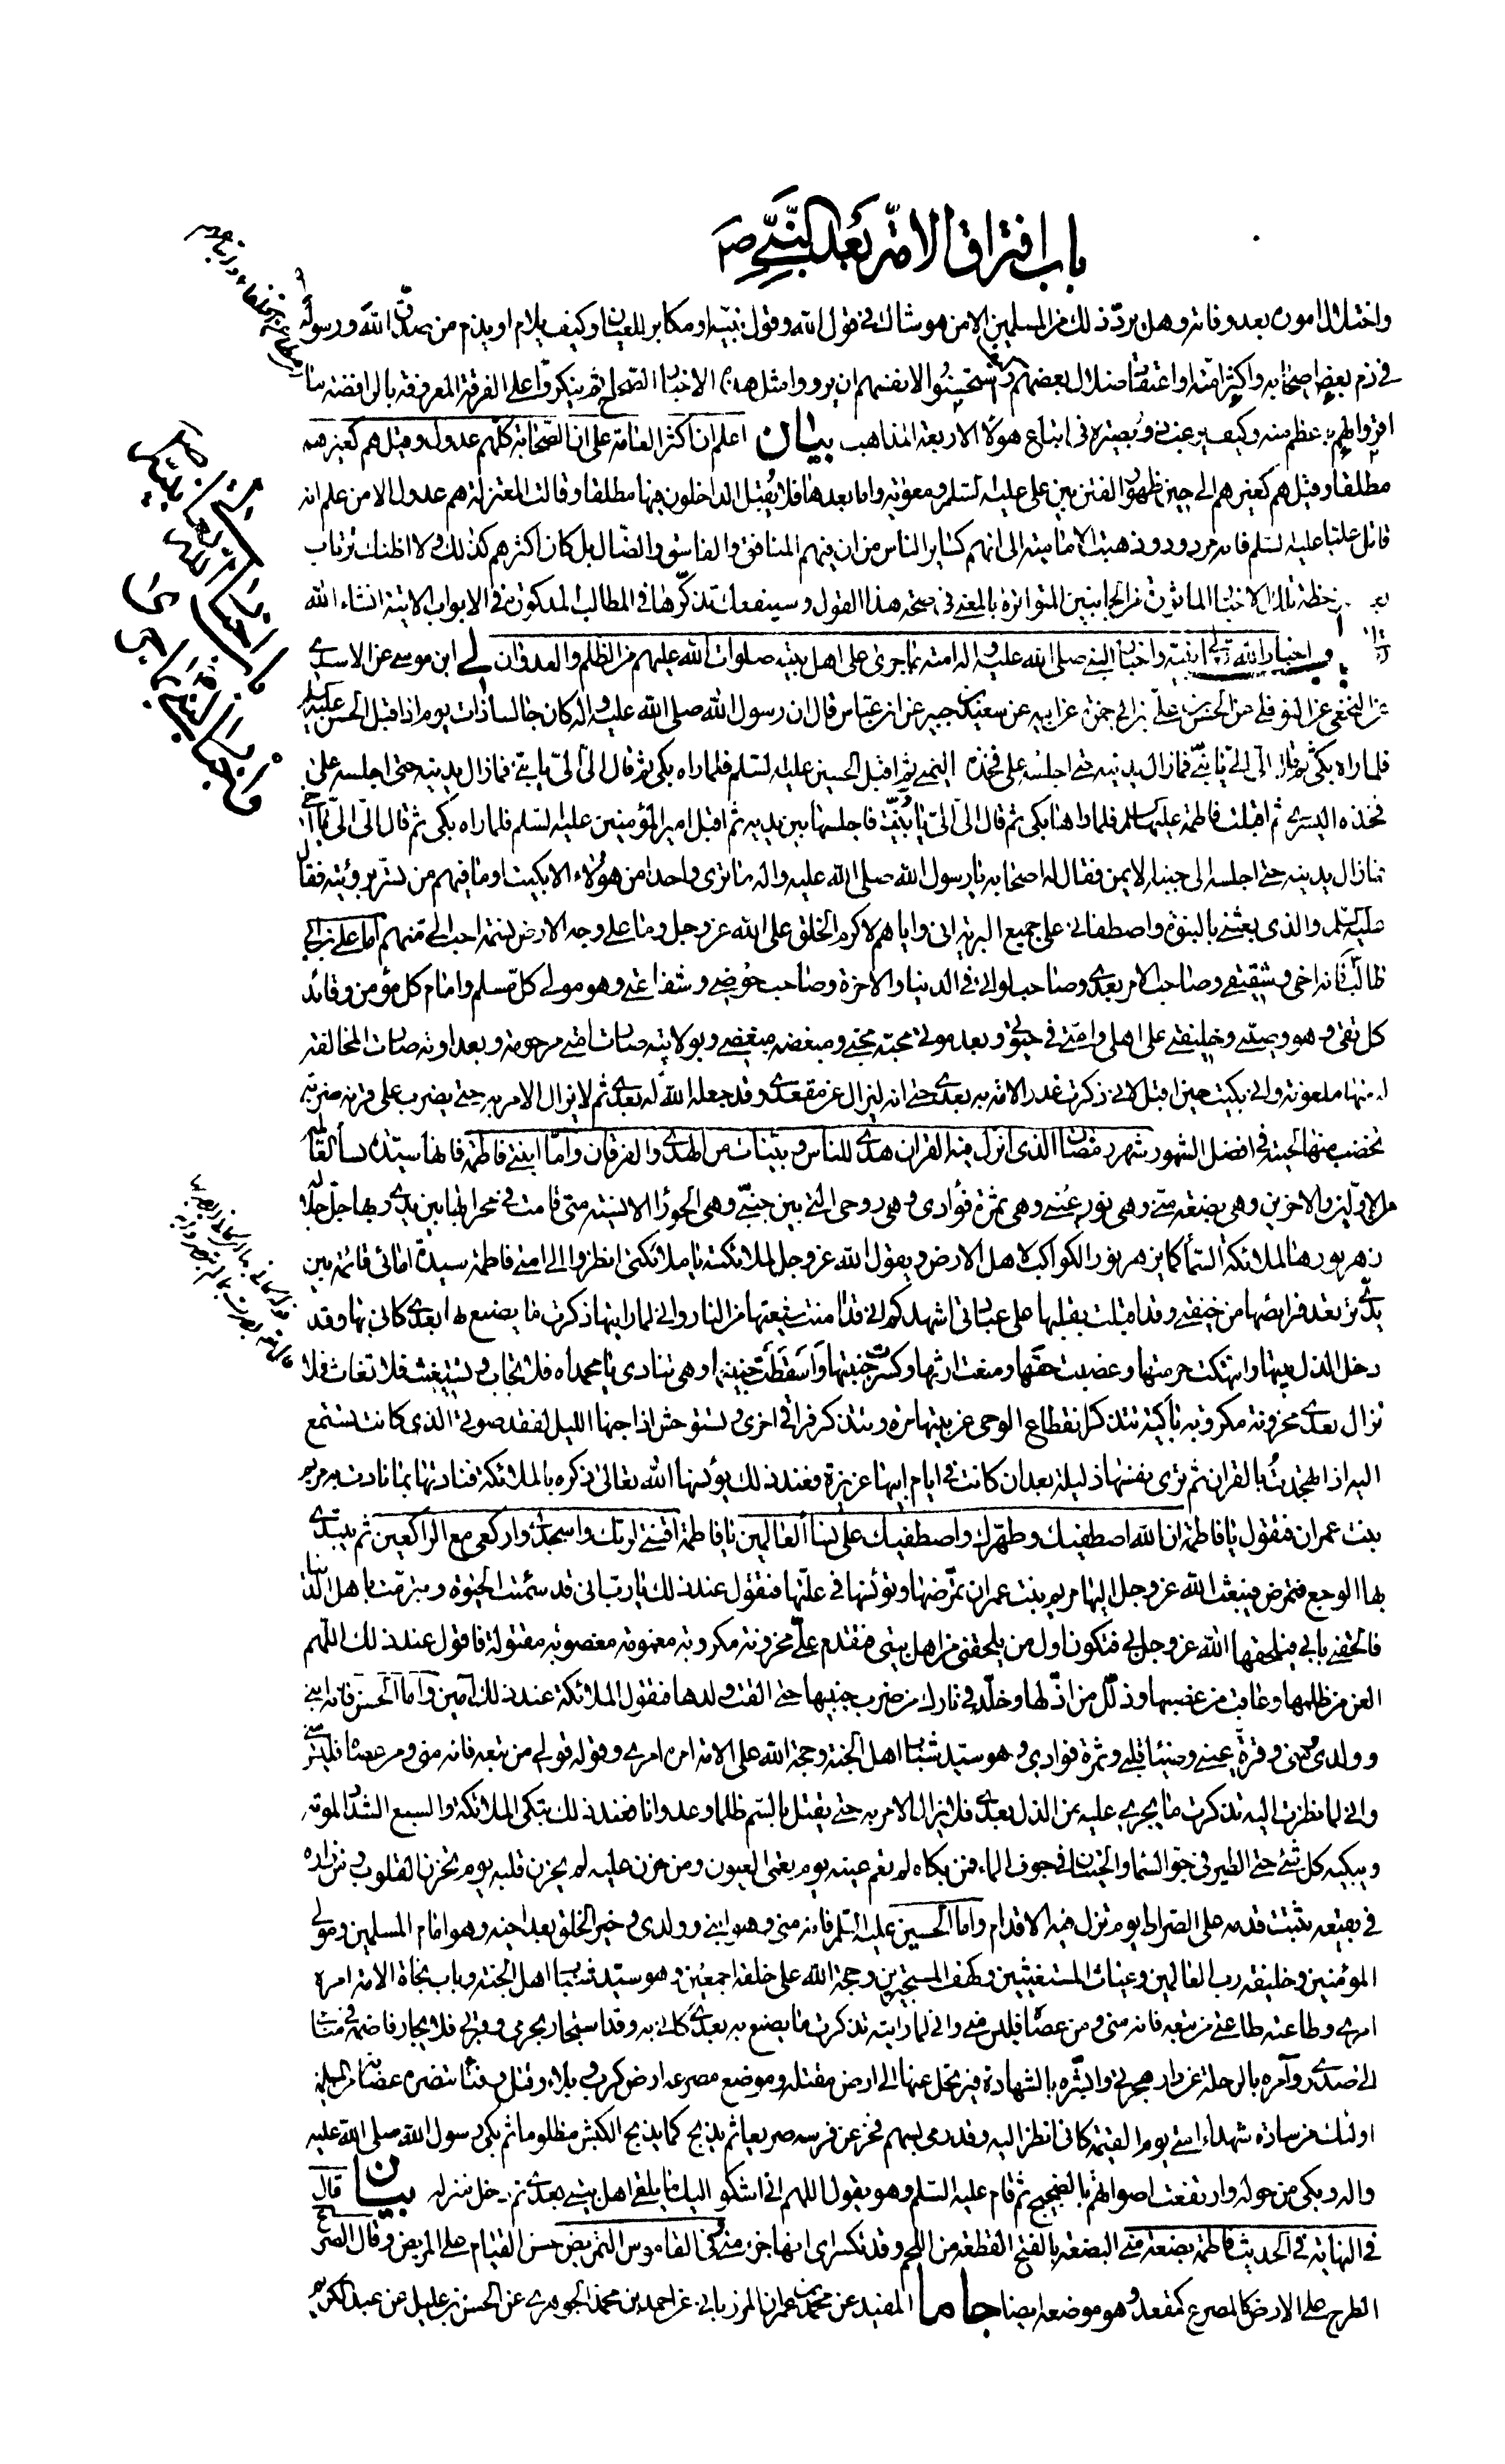 باب افتراق الامّة بعد النّبيّ ص
واختلال امورهم بعد وفاته وهل يردّ ذلك من المسلمين الا من هو شاك في قول الله وقول نبيّه او مكابر للعيان وكيف يلام او يذم من يصدّق الله ورسوله
في ذم بعض اصحابه واكثر امته واعتقاد ضلال بعضهم وكيف استحسنوا لانفسهم ان يرووا مثل هذه الاخبار الصّحاح ثم ينكروا على الفرقة المعروفة بالرافضة ما
اقروا لهم باعظم منه وكيف يرغب ذو بصيرة في اتباع هؤلاء الاربعة المذاهب بيان اعلم ان اكثر العامّة على ان الصّحابة كلّهم عدول وقيل هم كغيرهم
مطلقا وقيل هم كغيرهم الى حين ظهور الفتن بين علي عليه السّلم ومعوية واما بعدها فلا يقبل الداخلون فيها مطلقا وقالت المعتزلة هم عدول الا من علم انه
قاتل عليّا عليه السّلم فانه مردود وذهبت الاماميّة الى انهم كسائر الناس من ان فيهم المنافق والفاسق والضّال بل كان اكثرهم كذلك ولا اظنك ترتاب
بعد ملاحظة تلك الاخبار الماثورة من الجانبين المتواترة بالمعنى في صحّة هذا القول وسينفعك تذكّرها في المطالب المذكورة في الابواب الاتية انشاء الله
باب اخبار الله تعالى نبيّه واخبار النبي صلى الله عليه واله امته بما جرى على اهل بيته صلوات الله عليهم من الظلم والعدوان لي ابن موسى عن الاسدي
عن النخعي عن النوفلي عن الحسن بن علي بن ابي حمزة عن ابيه عن سعيد بن جبير عن ابن عباس قال ان رسول الله صلى الله عليه واله كان جالسا ذات يوم اذ اقبل الحسن عليه السلم
فلما راه بكى ثم قال الىّ الىّ يا بنيّ فما زال يدنيه حتى اجلسه على فخذه اليمنى ثم اقبل الحسين عليه السّلم فلما راه بكى ثم قال الىّ الىّ يا بنيّ فما زال يدنيه حتى اجلسه على
فخذه اليسرى ثم اقبلت فاطمة عليها السلم فلما راها بكى ثم قال الىّ الىّ يا بنيّة فاجلسها بين يديه ثم اقبل امير المؤمنين عليه السّلم فلما راه بكى ثم قال الىّ الىّ يا اخي
فما زال يدنيه حتى اجلسه الى جنبه الايمن فقال له اصحابه يا رسول الله صلى الله عليه واله ما ترى واحدا من هؤلاء الا بكيت او ما فيهم من تسر برؤيته فقال
عليه السّلم والذي بعثني بالنبوّة واصطفاني على جميع البرية اني واياهم لاكرم الخلق على الله عز وجل وما على وجه الارض نسمة احب الىّ منهم اما علي بن ابي
طالب فانه اخي وشقيقي وصاحب الامر بعدي وصاحب لوائي في الدنيا والاخرة وصاحب حوضي وشفاعتي وهو مولى كل مسلم وامام كل مؤمن وقائد
كل تقي وهو وصيّي وخليفتي على اهلي وامّتي في حيوتي وبعد موتي محبه محبي ومبغضه مبغضي وبولايته صارت امّتي مرحومة وبعداوته صارت المخالفة
له منها ملعونة واني بكيت حين اقبل لاني ذكرت غدر الامّة به بعدي حتى انه ليزال عن مقعدي وقد جعله الله له بعدي ثم لا يزال الامر به حتى يضرب على قرنه ضربة
تخضب منها لحيته في افضل الشهور شهر رمضان الذي انزل فيه القران هدى للناس وبيّنات من الهدى والفرقان وامّا ابنتي فاطمة فانها سيّدة نساء العالمين
من الاوّلين والاخرين وهي بضعة منّي وهي نور عيني وهي ثمرة فؤادي وهي روحي التي بين جنبيّ وهي الحوراء الانسية متى قامت في محرابها بين يدي ربها جلّ جلاله
زهر نورها لملائكة السّماء كما يزهر نور الكواكب لاهل الارض ويقول الله عز وجل لملائكته يا ملائكتي انظروا الى امتي فاطمة سيدة امائي قائمة بين
يديّ ترتعد فرايصها من خيفتي وقد اقبلت بقلبها على عبادتي اشهدكم اني قد امنت شيعتها من النار واني لما رايتها ذكرت ما يصنع بها بعدي كاني بها وقد
دخل الذل بيتها وانتهكت حرمتها وغصبت حقّها ومنعت ارثها وكسرت جنبها واسقطت جنينها وهي تنادي يا محمداه فلا تجاب وتستغيث فلا تغاث فلا
تزال بعدي محزونة مكروبة باكية تتذكر انقطاع الوحي عن بيتها مرة وتتذكر فراقي اخرى وتستوحش اذا جنها الليل لفقد صوتي الذي كانت تستمع
اليه اذا تهجدت بالقران ثم ترى نفسها ذليلة بعد ان كانت في ايام ابيها عزيزة فعند ذلك يؤنسها الله تعالى ذكره بالملائكة فنادتها بما نادت به مريم
بنت عمران فتقول يا فاطمة ان الله اصطفيك وطهّرك واصطفيك على نساء العالمين يا فاطمة اقنتي لربّك واسجدي واركعي مع الراكعين ثم يبتدي
بها الوجع فتمرض فيبعث الله عز وجل اليها مريم بنت عمران تمّرضها وتونسها في علّتها فتقول عند ذلك يا ربّ اني قد سئمت الحيوة وتبرّمت باهل الدنيا
فالحقني بابي فيلحقها الله عز وجل بي فتكون اول من يلحقني من اهل بيتي فتقدم علىّ محزونة مكروبة مغمومة مغصوبة مقتولة فاقول عند ذلك اللهم
العن من ظلمها وعاقب من غصبها وذلّل من اذلّها وخلّد في نارك من ضرب جنبيها حتى القت ولدها فتقول الملائكة عند ذلك آمين وامّا الحسن فانه ابني
وولدي ومنّي وقرة عيني وضياء قلبي وثمرة فؤادي وهو سيّد شباب اهل الجنة وحجة الله على الامة امره امري وقوله قولي من تبعه فانه مني ومن عصاه فليس منّي
واني لما نظرت اليه تذكرت ما يجري عليه من الذل بعدي فلا يزال الامر به حتى يقتل بالسّم ظلما وعدوانا فعند ذلك تبكي الملائكة والسبع الشداد لموته
ويبكيه كل شئ حتى الطير في جوّ السّماء والحيتان في جوف الماء فمن بكاه لم تعم عينه يوم تعمى العيون ومن حزن عليه لم يحزن قلبه يوم تحزن القلوب ومن زاره
في بقيعه ثبتت قدمه على الصّراط يوم تزل فيه الاقدام وامّا الحسين عليه السّلم فانه منّي وهو ابني وولدي وخير الخلق بعد اخيه وهو امام المسلمين ومولى
المؤمنين وخليفة رب العالمين وغياث المستغيثين وكهف المستجيرين وحجة الله على خلقه اجمعين وهو سيّد شباب اهل الجنة وباب نجاة الامة امره
امري وطاعته طاعتي من تبعه فانه منّي ومن عصاه فليس منّي واني لما رايته تذكرت ما يصنع به بعدي كاني به وقد استجار بحرمي وقبري فلا يجار فاضمه في منامه
الى صدري وآمره بالرحلة عن دار هجرتي وابشّره بالشهادة فيرتحل عنها الى ارض مقتله وموضع مصرعه ارض كرب وبلاء وقتل وفناء تنصره عصابة من المسلمين
اولئك من سادة شهداء امّتي يوم القيمة كاني انظر اليه وقد رمى بسهم فخر عن فرسه صريعا ثم يذبح كما يذبح الكبش مظلوما ثم بكى رسول الله صلى الله عليه
واله وبكى من حوله وارتفعت اصواتهم بالضجيج ثم قام عليه السّلم وهو يقول اللهم اني اشكو اليك ما يلقى اهل بيتي بعدي ثم دخل منزله بيان قال
في النهاية في الحديث فاطمة بضعة منّي البضعة بالفتح القطعة من اللحم وقد تكسر اي انها جزء منّي وفي القاموس التمريض حسن القيام على المريض وقال الصرع
الطرح على الارض كالمصرع كمقعد وهو موضعه ايضا جا ما المفيد عن محمد بن عمران المرزباني عن احمد بن محمد الجوهري عن الحسن بن عليل عن عبد الكريم